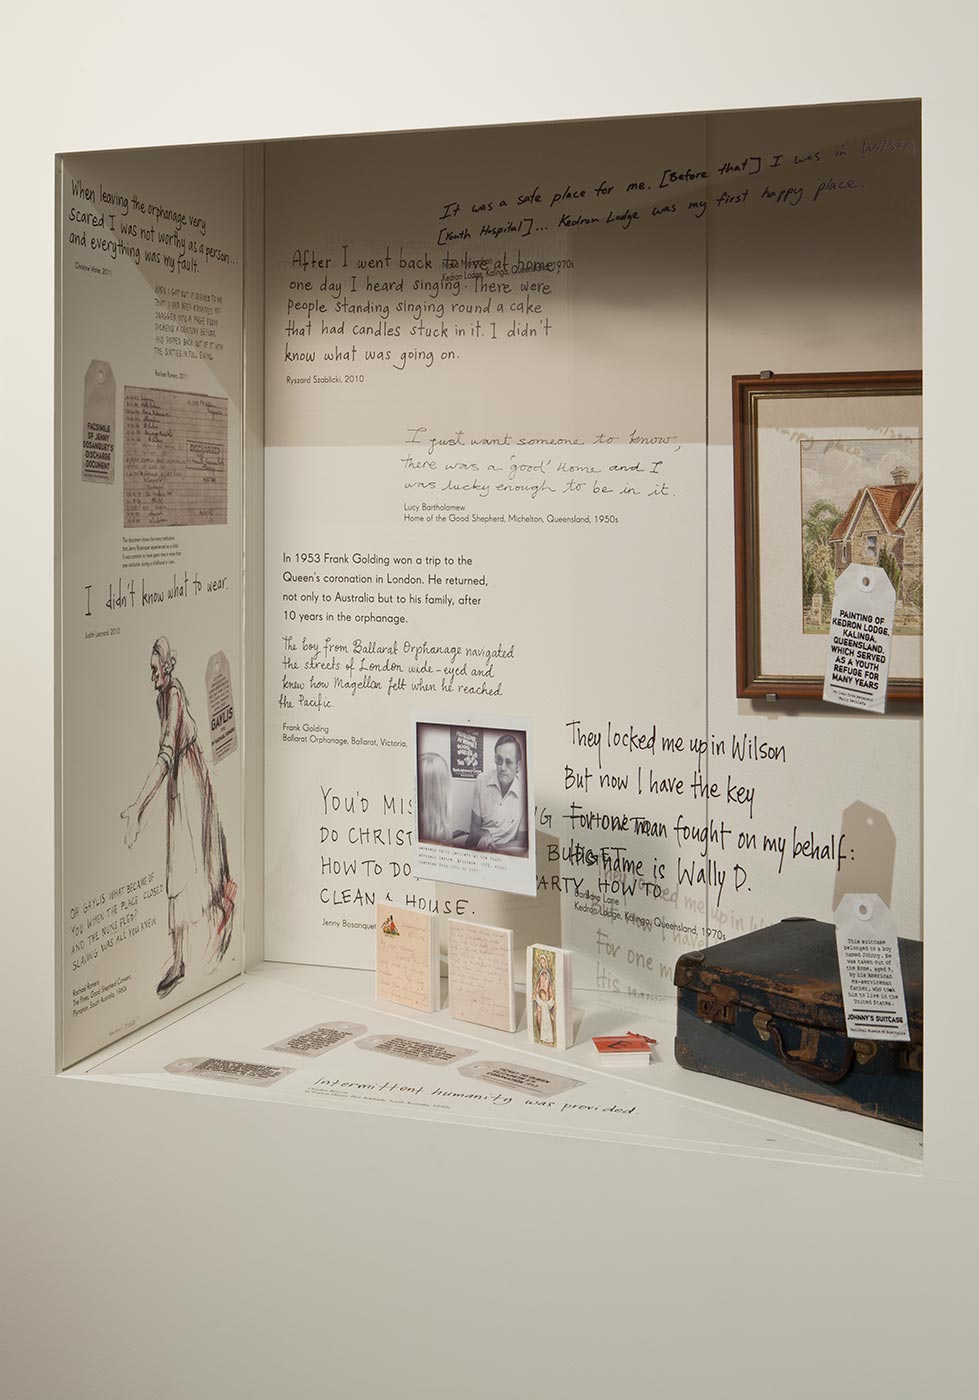 When leaving the orphanage very
scared I was not worthy as a person...
and everything was my fault.
Christine Wate, 2011
WHEN I GOT OUT IT SEEMED TO ME
THAT I HAD BEEN KIDNAPPED AND
DRAGGED INTO A PAGE FROM
DICKENS A CENTURY BEFORE
AND POPPED BACK OUT OF IT WITH
THE SIXTIES IN FULL SWING
Rachael Romero, 2011
FACSIMILE
OF JENNY
BOSANQUET'S
DISCHARGE
DOCUMENT
DISCHARGED
This document shows the many institutions
that Jenny Bosanquet experienced as a child.
It was common to have spent time in more than
one institution during a childhood in 'care'.
I didn't know what to wear.
Judith Leonard, 2010
GAYLIS
OH GAYLIS WHAT BECAME OF
YOU WHEN THE PLACE CLOSED
AND THE NUNS FLED?
SLAVING WAS ALL YOU KNEW
Rachael Romero
The Pines, Good Shepherd Convent,
Plympton, South Australia, 1960s
It was a safe place for me. [Before that] I was in Wilson
[Youth Hospital]... Kedron Lodge was my first happy place.
Kedron Lodge, Kalinga, Queensland, 1970s
After I went back to live at home,
one day I heard singing. There were
people standing singing round a cake
that had candles stuck in it. I didn't
know what was going on.
Ryszard Szablicki, 2010
I just want someone to know,
there was a 'good' Home and I
was lucky enough to be in it.
Lucy Bartholomew
Home of the Good Shepherd, Michelton, Queensland, 1950s
In 1953 Frank Golding won a trip to the
Queen's coronation in London. He returned,
not only to Australia but to his family, after
10 years in the orphanage.
The boy from Ballarat Orphanage navigated
the streets of London wide-eyed and
knew how Magellan felt when he reached
the Pacific.
Frank Golding
Ballarat Orphanage, Ballarat, Victoria,
PAINTING OF
KEDRON LODGE,
KALINGA,
QUEENSLAND,
WHICH SERVED
AS A YOUTH
REFUGE FOR
MANY YEARS
YOU'D MIS
DO CHRIST
HOW TO DO BUDGET
PARTY, HOW TO
CLEAN A HOUSE.
Jenny Bosanquet
They locked me up in Wilson
But now I have the key
For one man fought on my behalf:
His name is Wally D.
Barbara Lane
Kedron Lodge, Kalinga, Queensland, 1970s
This suitcase
belonged to a boy
named Johnny. He
was taken out of
the Home, aged 9,
by his American
ex-serviceman
father, who took
him to live in the
United States.
JOHNNY'S SUITCASE
National Museum of Australia
Intermittent humanity was provided.